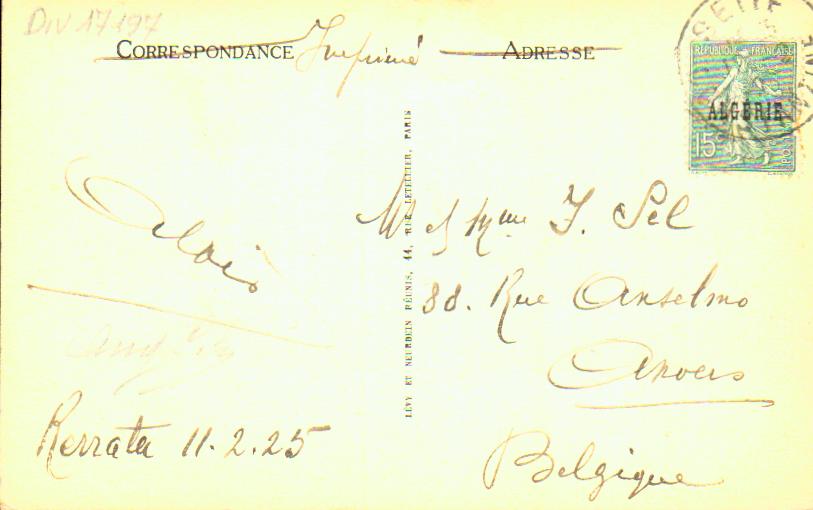 Div 17197
CORRESPONDANCE Imprimé ADRESSE
RÉPUBLIQUE FRANÇAISE
ALGÉRIE
15c
POSTES
Aloïs
Mr et Mme J. Sel
88. Rue Anselmo
Anvers
Belgique
Kerrata 11.2.25
LÉVY ET NEURDEIN RÉUNIS, 44, RUE LETELLIER, PARIS